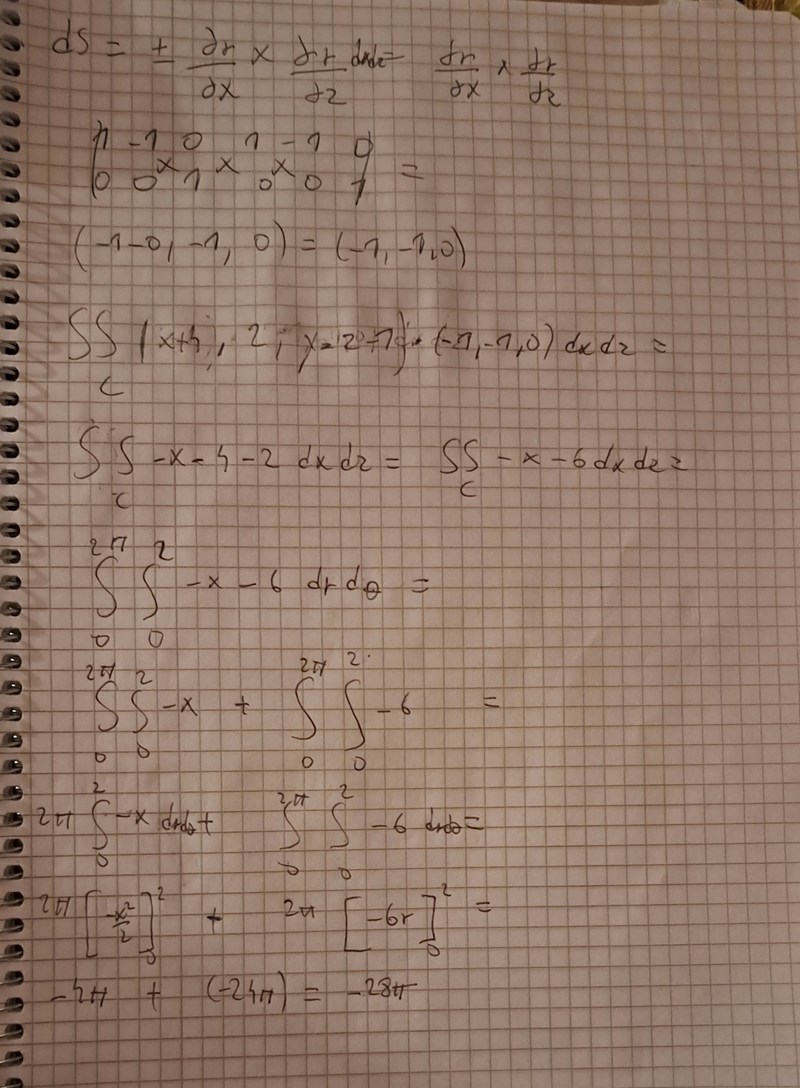 dS = ± ∂r/∂x × ∂r/∂z dxdz = ∂r/∂x × ∂r/∂z
1 -1 0 1 -1 0
0 0 × 1 × 0 × 0 1 =
(-1-0, -1, 0) = (-1, -1, 0)
∫∫_C (x+4, 2, y-z+7) · (-1, -1, 0) dx dz =
∫∫_C -x-4-2 dx dz = ∫∫_C -x-6 dx dz =
∫_0^{2π} ∫_0^2 -x-6 dr dθ =
∫_0^{2π} ∫_0^2 -x + ∫_0^{2π} ∫_0^2 -6 =
2π ∫_0^2 -x drdθ + ∫_0^{2π} ∫_0^2 -6 drdθ =
2π [-x²/2]_0^2 + 2π [-6r]_0^2 =
-4π + (-24π) = -28π